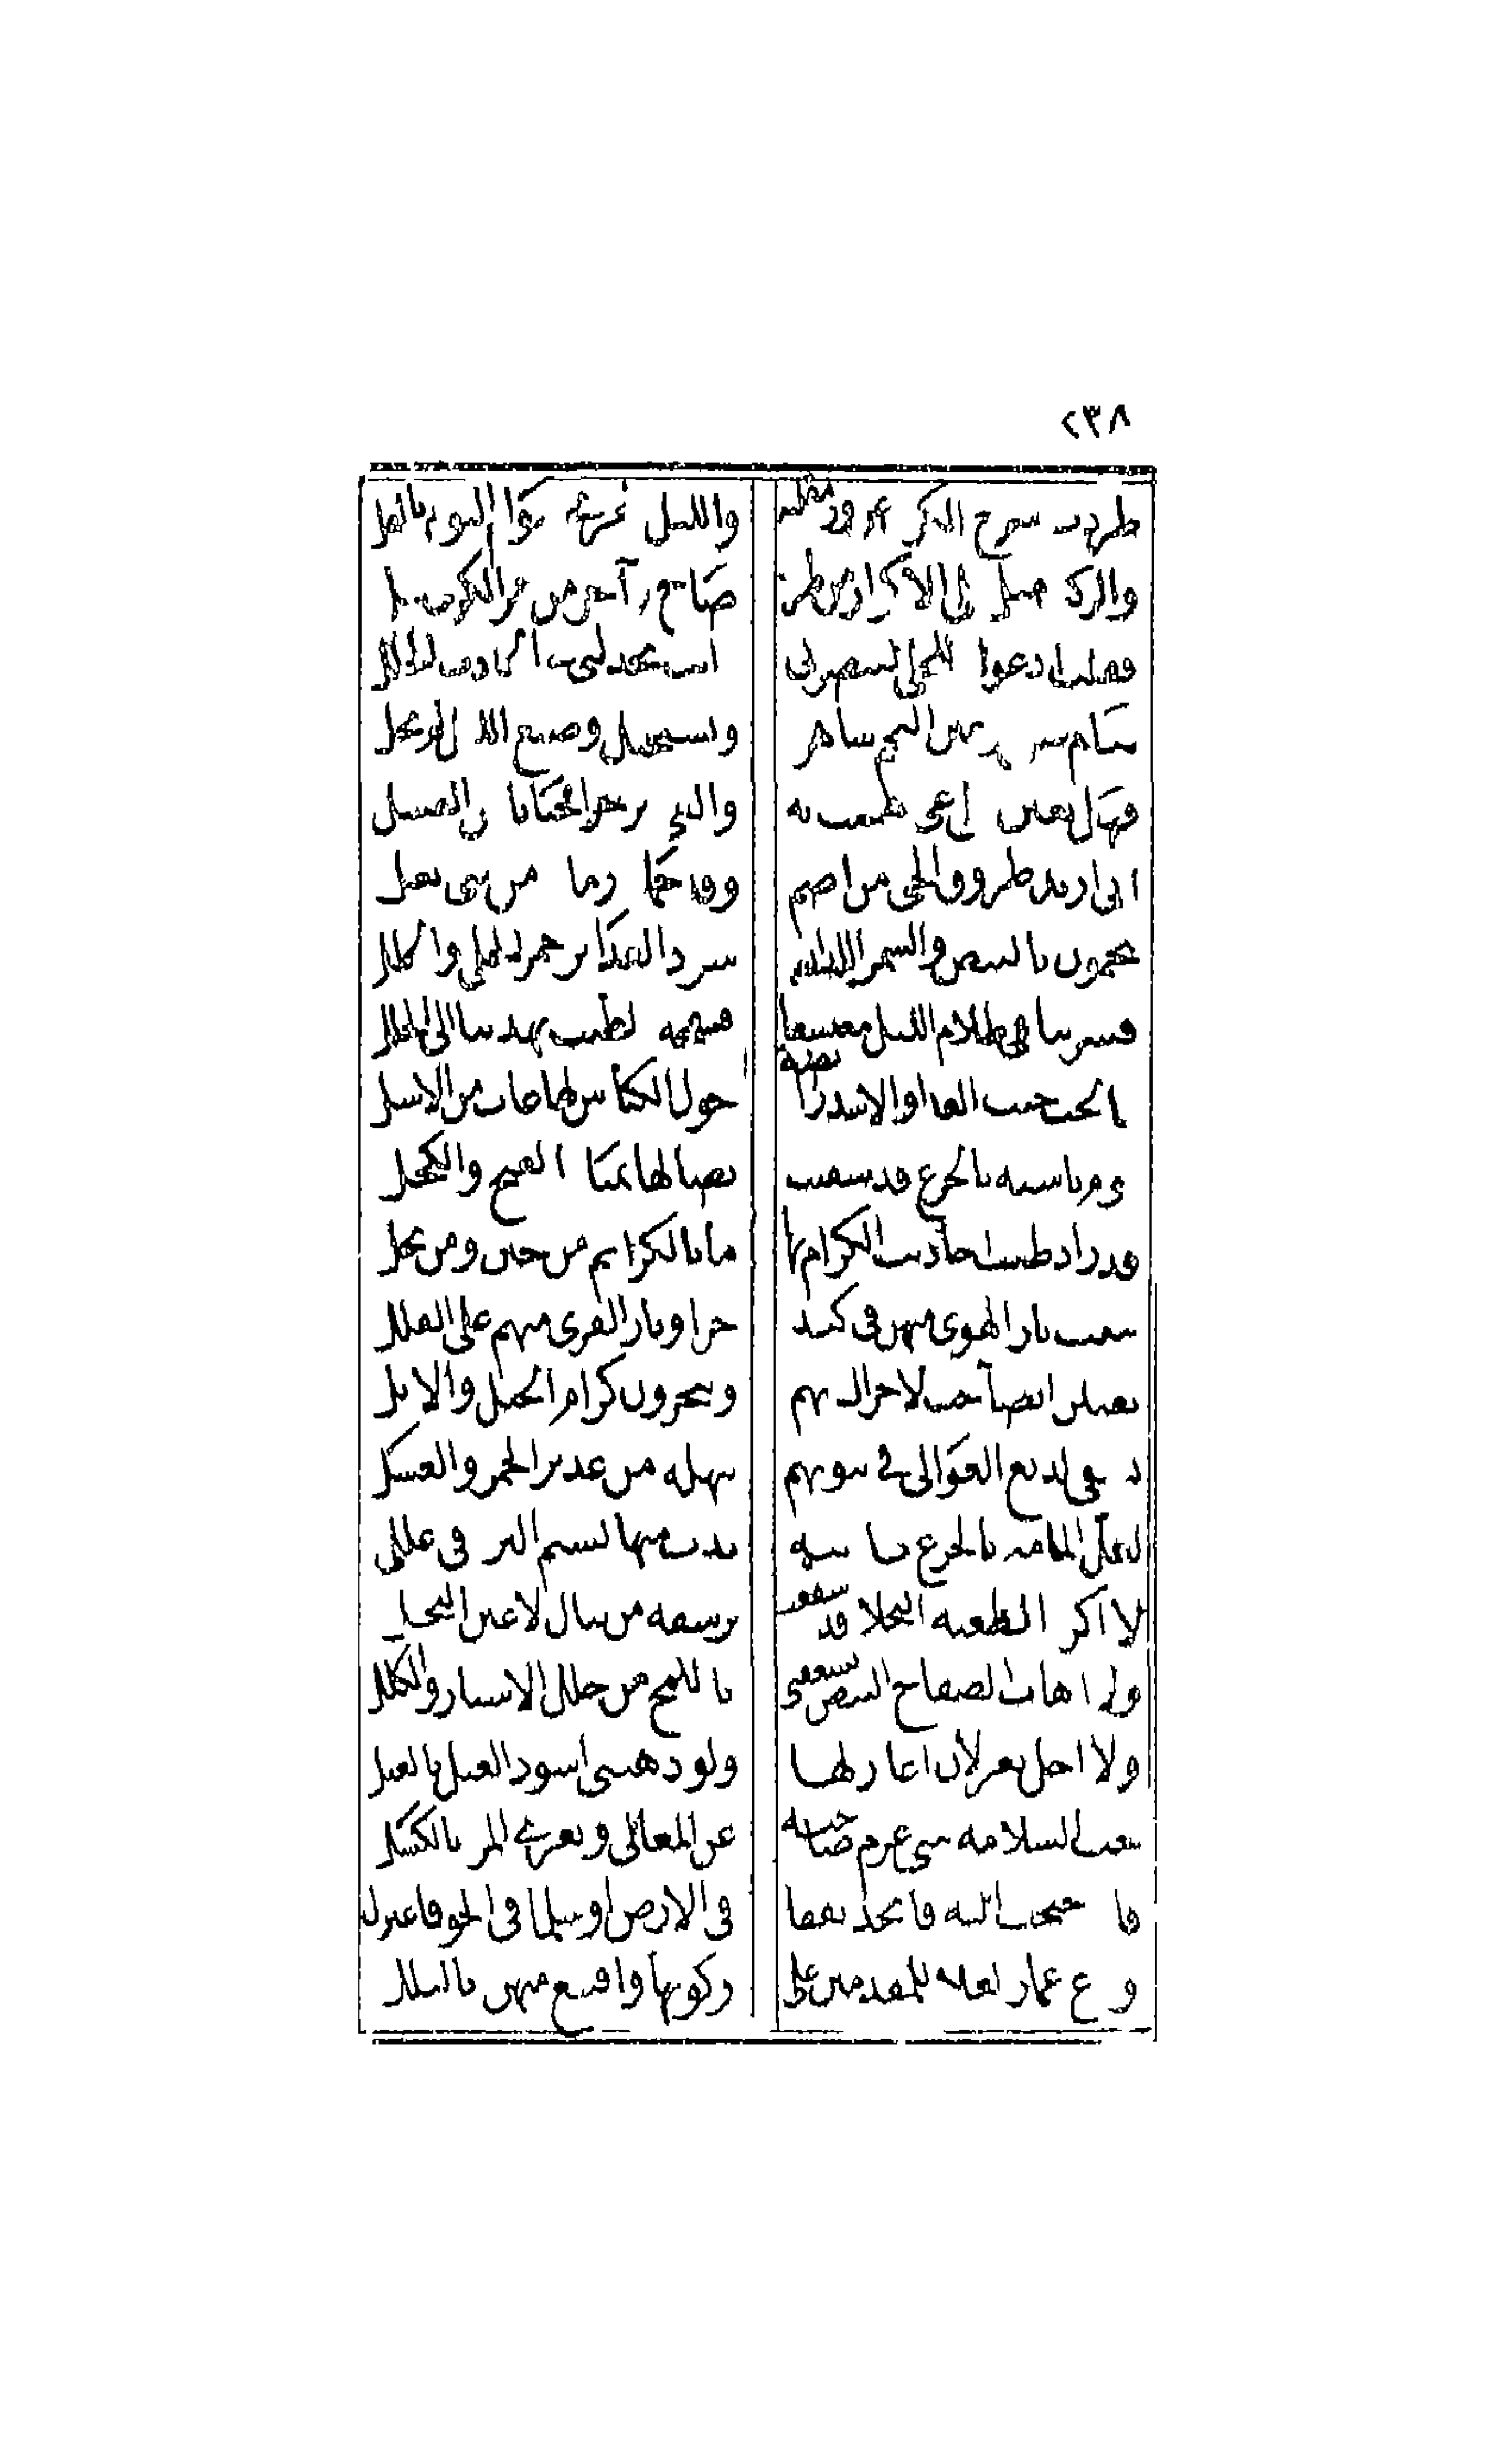 ٢٣٨
طردت سرح الكرى عن ورد مقلته والليل اغرى سوام النوم بالمقل
والركب ميل على الاكوار من طرب صاح وآخر من خمر الكرى ثمل
فقلت ادعوك للجلى لتنصرني وانت تخذلني في الحادث الجلل
تنام عيني وعين النجم ساهرة وتستحيل وصبغ الليل لم يحل
فهل تعين على غي هممت به والغي يزجر احيانا عن الفشل
اني اريد طروق الحي من اضم وقد حماه رماة من بني ثعل
يحمون بالبيض والسمر اللدان به سود الغدائر حمر الحلي والحلل
فسر بنا في ظلام الليل معتسفا فنفحة الطيب تهدينا الى الحلل
فالحب حيث العدا والاسد رابضة حول الكناس لها غاب من الاسل
نؤم ناشئة بالجزع قد سقيت نصالها بمياه الغنج والكحل
قد زاد طيب احاديث الكرام بها ما بالكرائم من جبن ومن بخل
تبيت نار الهوى منهن في كبد حرا ونار القرى منهم على القلل
يقتلن انضاء حب لا حراك بهم وينحرون كرام الخيل والابل
يشفى لديغ العوالي في بيوتهم بنهلة من غدير الخمر والعسل
لعل المامة بالجزع ثانية يدب منها نسيم البرء في عللي
لا اكره الطعنة النجلاء قد شفعت برشقة من نبال الاعين النجل
ولا اهاب الصفاح البيض تسعدني باللمح من خلل الاستار والكلل
ولا اخل بغزلان اغازلها ولو دهتني اسود الغيل بالغيل
حب السلامة يثني عزم صاحبه عن المعالي ويغري المرء بالكسل
فان جنحت اليه فاتخذ نفقا في الارض او سلما في الجو فاعتزل
ودع غمار العلا للمقدمين على ركوبها واقتنع منهن بالبلل